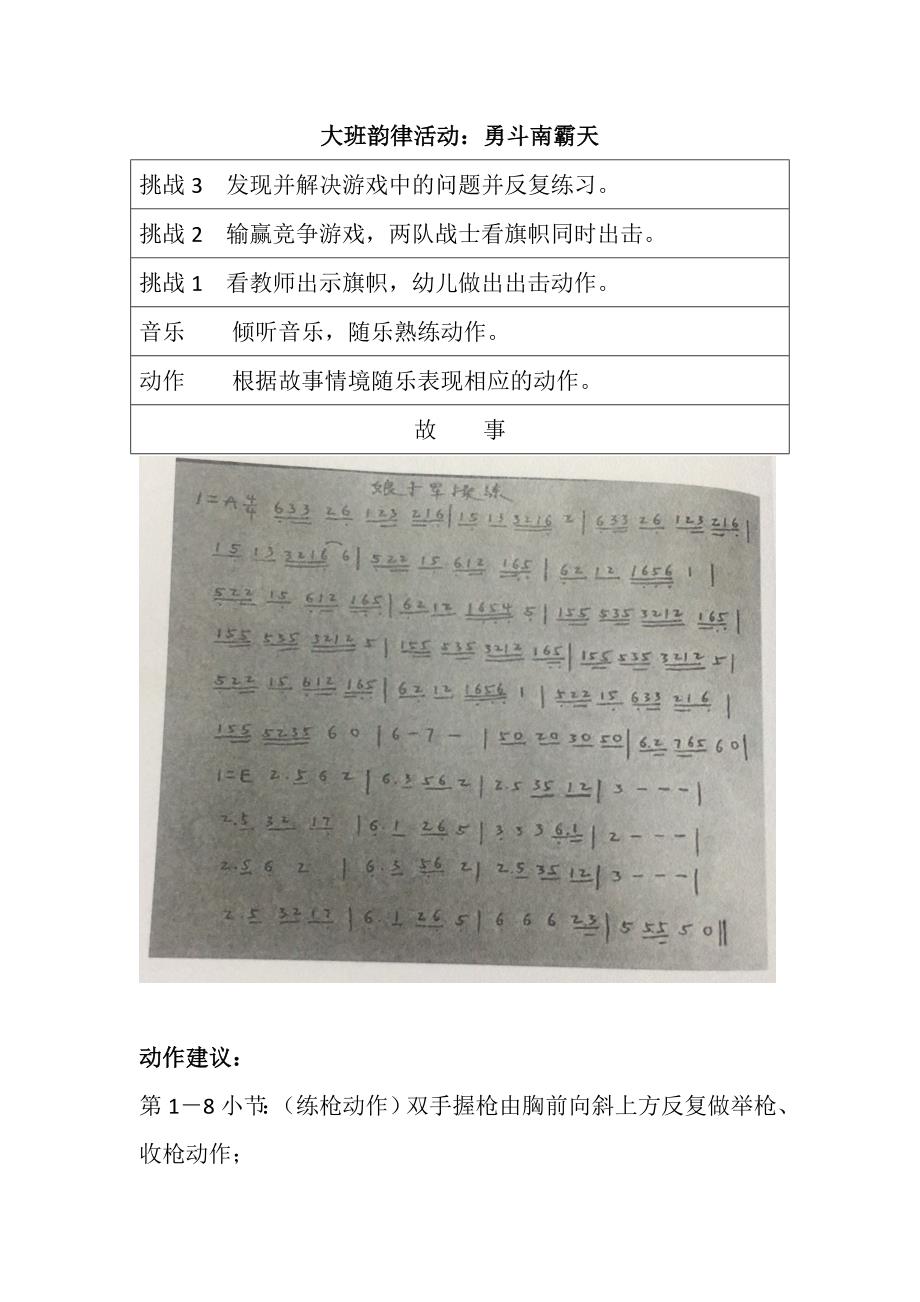 大班韵律活动：勇斗南霸天
挑战 3 发现并解决游戏中的问题并反复练习。
挑战 2 输赢竞争游戏，两队战士看旗帜同时出击。
挑战 1 看教师出示旗帜，幼儿做出出击动作。
音乐 倾听音乐，随乐熟练动作。
动作 根据故事情境随乐表现相应的动作。
故 事
娘子军操练
1=A 4/4 633 26 123 216 | 15 13 3216 2 | 633 26 123 216 |
15 13 3216 6 | 522 15 612 165 | 62 12 1656 1 |
522 15 612 165 | 6212 1654 5 | 155 535 3212 165 |
155 535 3212 5 | 155 535 3212 165 | 155 535 3212 5 |
522 15 612 165 | 62 12 1656 1 | 522 15 633 216 |
155 5235 6 0 | 6 - 7 - | 50 20 30 50 | 6.2 765 60 |
1=E 2.5 6 2 | 6.3 56 2 | 2.5 35 12 | 3 - - - |
2.5 32 17 | 6.1 26 5 | 3 3 3 6.1 | 2 - - - |
2.5 6 2 | 6.3 56 2 | 2.5 35 12 | 3 - - - |
2.5 3217 | 6.1 26 5 | 6 6 6 23 | 5 55 5 0 ||
动作建议：
第 1－8 小节：（练枪动作）双手握枪由胸前向斜上方反复做举枪、
收枪动作；